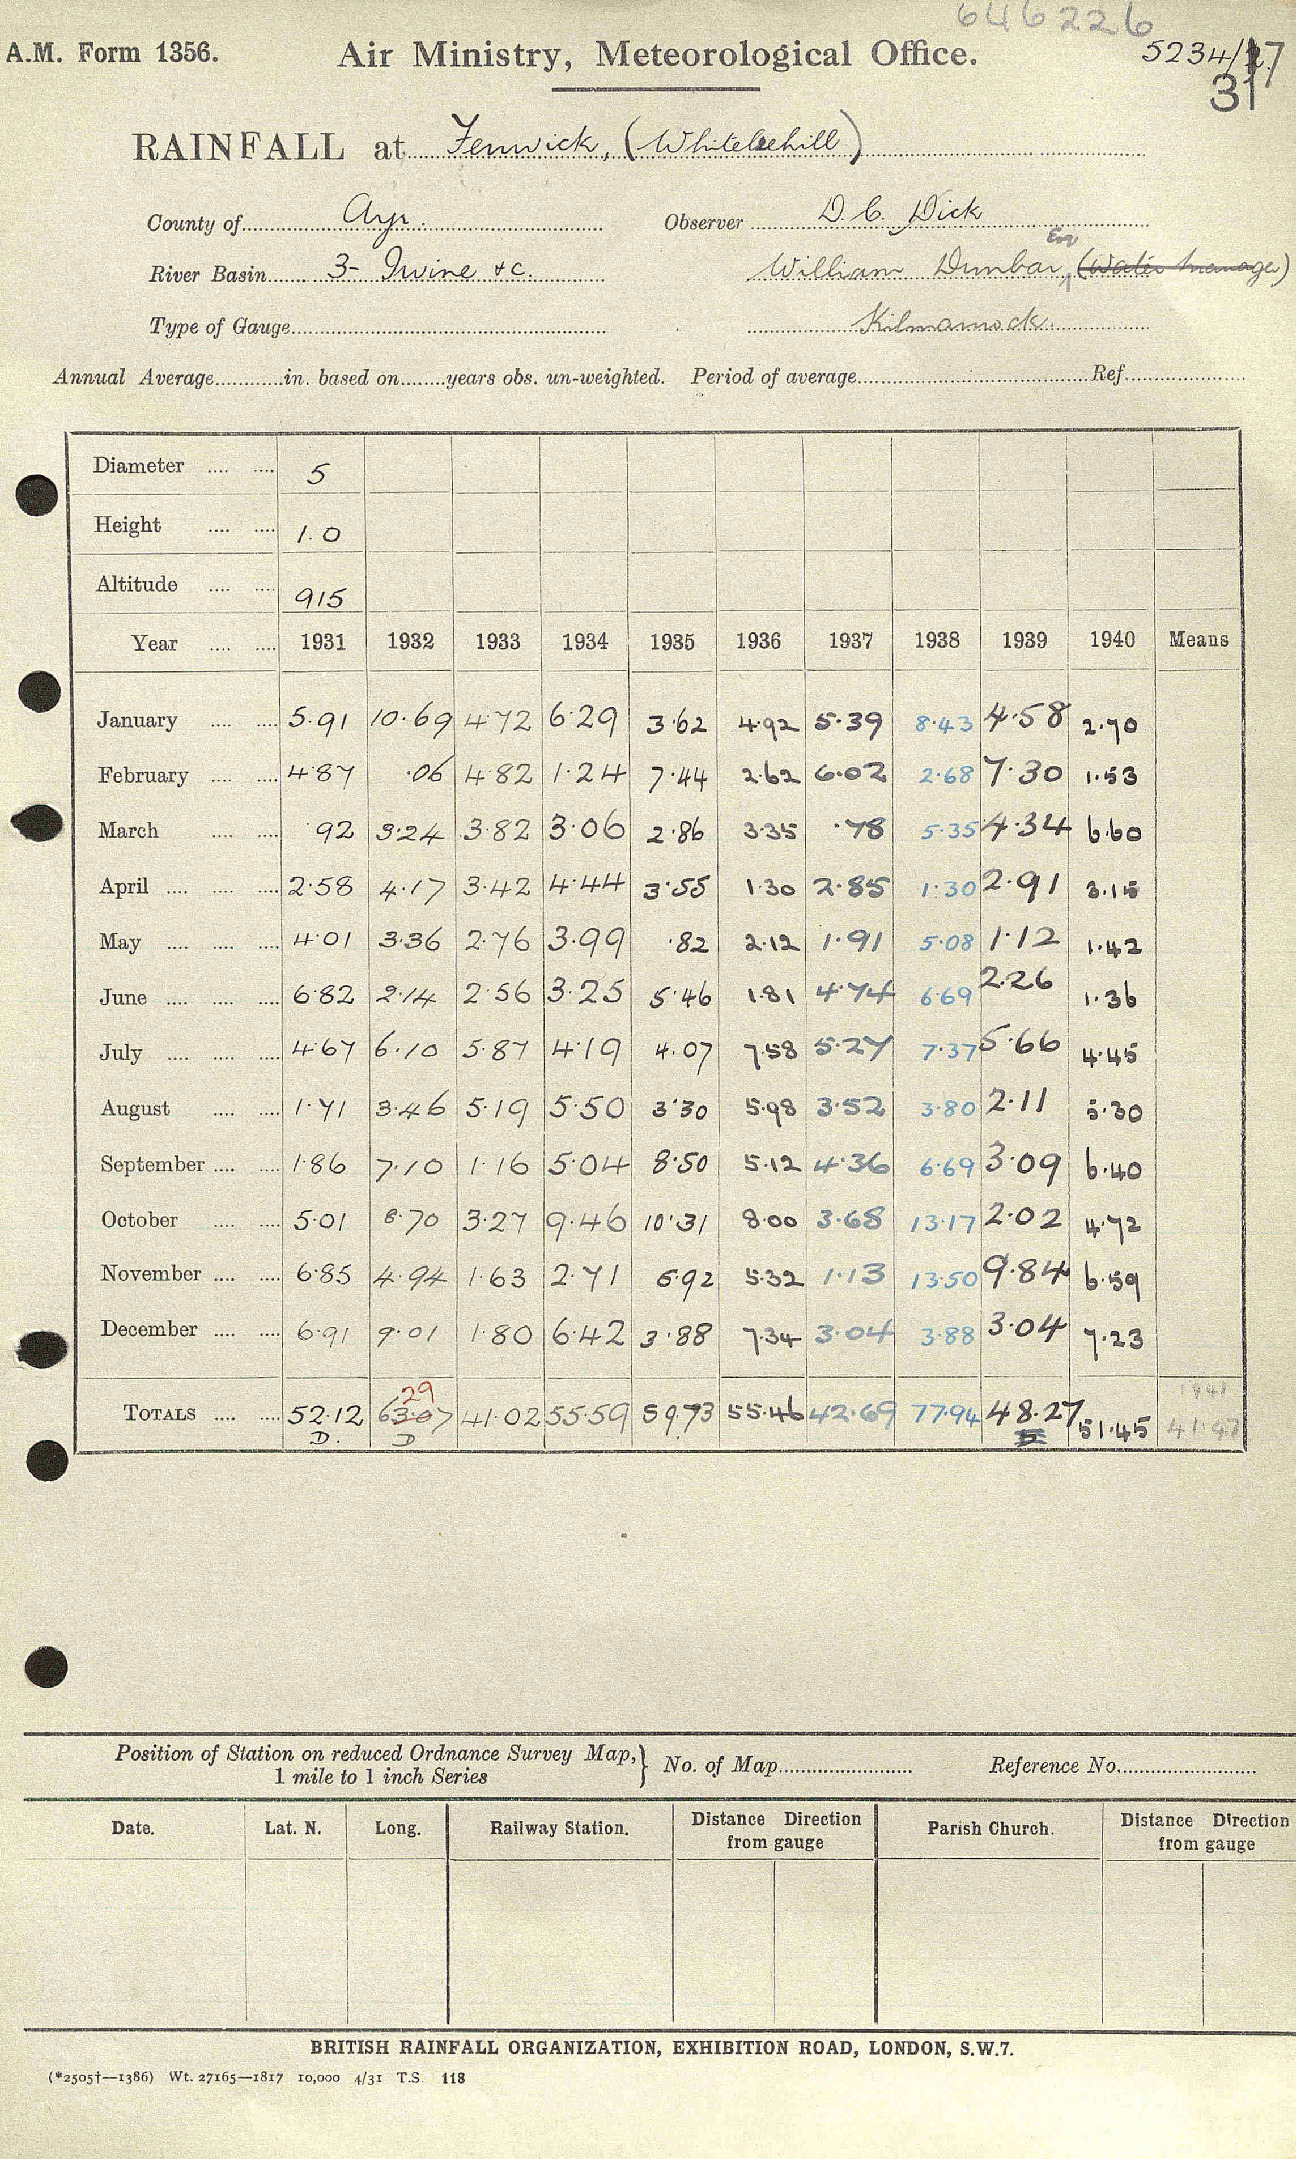 646226
A.M. Form 1356. Air Ministry, Meteorological Office. 5234/
31
RAINFALL at Fenwick, (Whiteleehill)
County of Ayr. Observer D. C. Dick
River Basin 3- Irvine & c. William Dunbar, Esq (Water Manager)
Type of Gauge Kilmarnock.
Annual Average in. based on years obs. un-weighted. Period of average Ref.
Diameter 5
Height 1.0
Altitude 915
Year 1931 1932 1933 1934 1935 1936 1937 1938 1939 1940 Means
January 5.91 10.69 4.72 6.29 3.62 4.92 5.39 8.43 4.58 2.70
February 4.87 .06 4.82 1.24 7.44 2.62 6.02 2.68 7.30 1.53
March .92 3.24 3.82 3.06 2.86 3.35 .78 5.35 4.34 6.60
April 2.58 4.17 3.42 4.44 3.55 1.30 2.85 1.30 2.91 3.15
May 4.01 3.36 2.76 3.99 .82 2.12 1.91 5.08 1.12 1.42
June 6.82 2.14 2.56 3.25 5.46 1.81 4.74 6.69 2.26 1.36
July 4.67 6.10 5.87 4.19 4.07 7.58 5.27 7.37 5.66 4.45
August 1.71 3.46 5.19 5.50 3.30 5.98 3.52 3.80 2.11 5.30
September 1.86 7.10 1.16 5.04 8.50 5.12 4.36 6.69 3.09 6.40
October 5.01 8.70 3.27 9.46 10.31 8.00 3.68 13.17 2.02 4.72
November 6.85 4.94 1.63 2.71 5.92 5.32 1.13 13.50 9.84 6.59
December 6.91 9.01 1.80 6.42 3.88 7.34 3.04 3.88 3.04 7.23
29 1941
TOTALS 52.12 63.07 41.02 55.59 59.73 55.46 42.69 77.94 48.27 51.45
D. D
Position of Station on reduced Ordnance Survey Map, } No. of Map Reference No.
1 mile to 1 inch Series
Date. Lat. N. Long. Railway Station. Distance Direction from gauge Parish Church. Distance Direction from gauge
BRITISH RAINFALL ORGANIZATION, EXHIBITION ROAD, LONDON, S.W.7.
(*2505†—1386) Wt. 27165—1817 10,000 4/31 T.S. 118